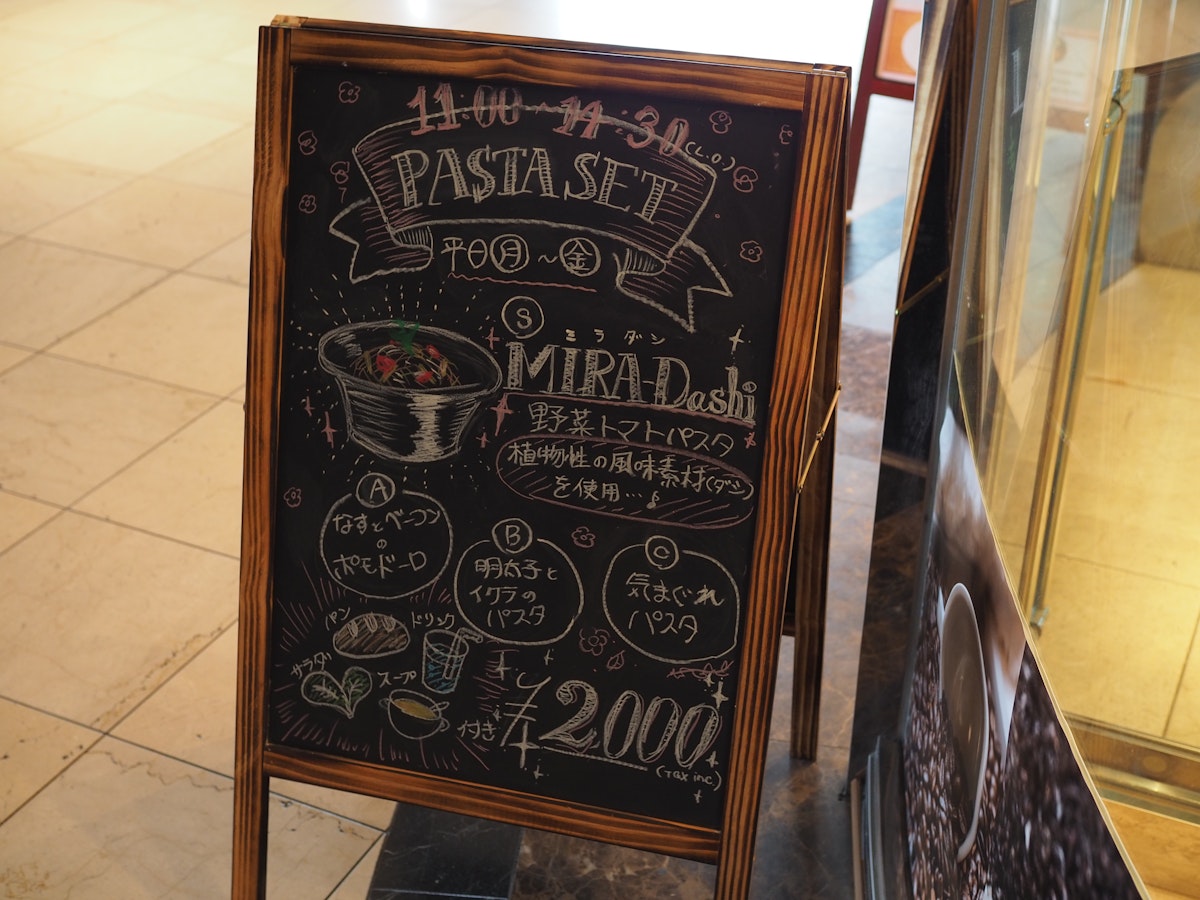 11:00~14:30(L.O.)
PASTA SET
平日月~金
S
ミラダシ
MIRA-Dashi
野菜トマトパスタ
植物性の風味素材(ダシ)
を使用…♪
A
なすとベーコン
の
ポモドーロ
B
明太子と
イクラの
パスタ
C
気まぐれ
パスタ
パン
ドリンク
サラダ
スープ
付き
¥2000
(Tax inc.)